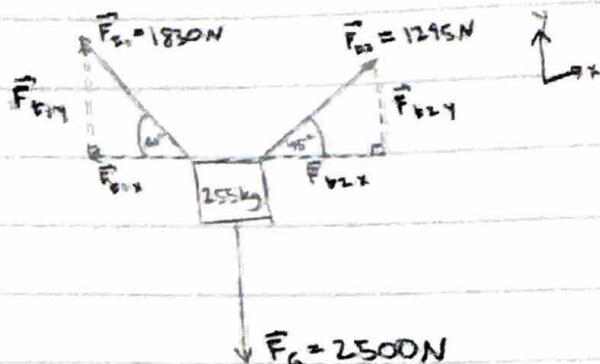 F_t1 = 1830N
F_t2 = 1295N
y
x
F_t1y
F_t2y
60°
45°
F_t1x
F_t2x
255kg
F_G = 2500N